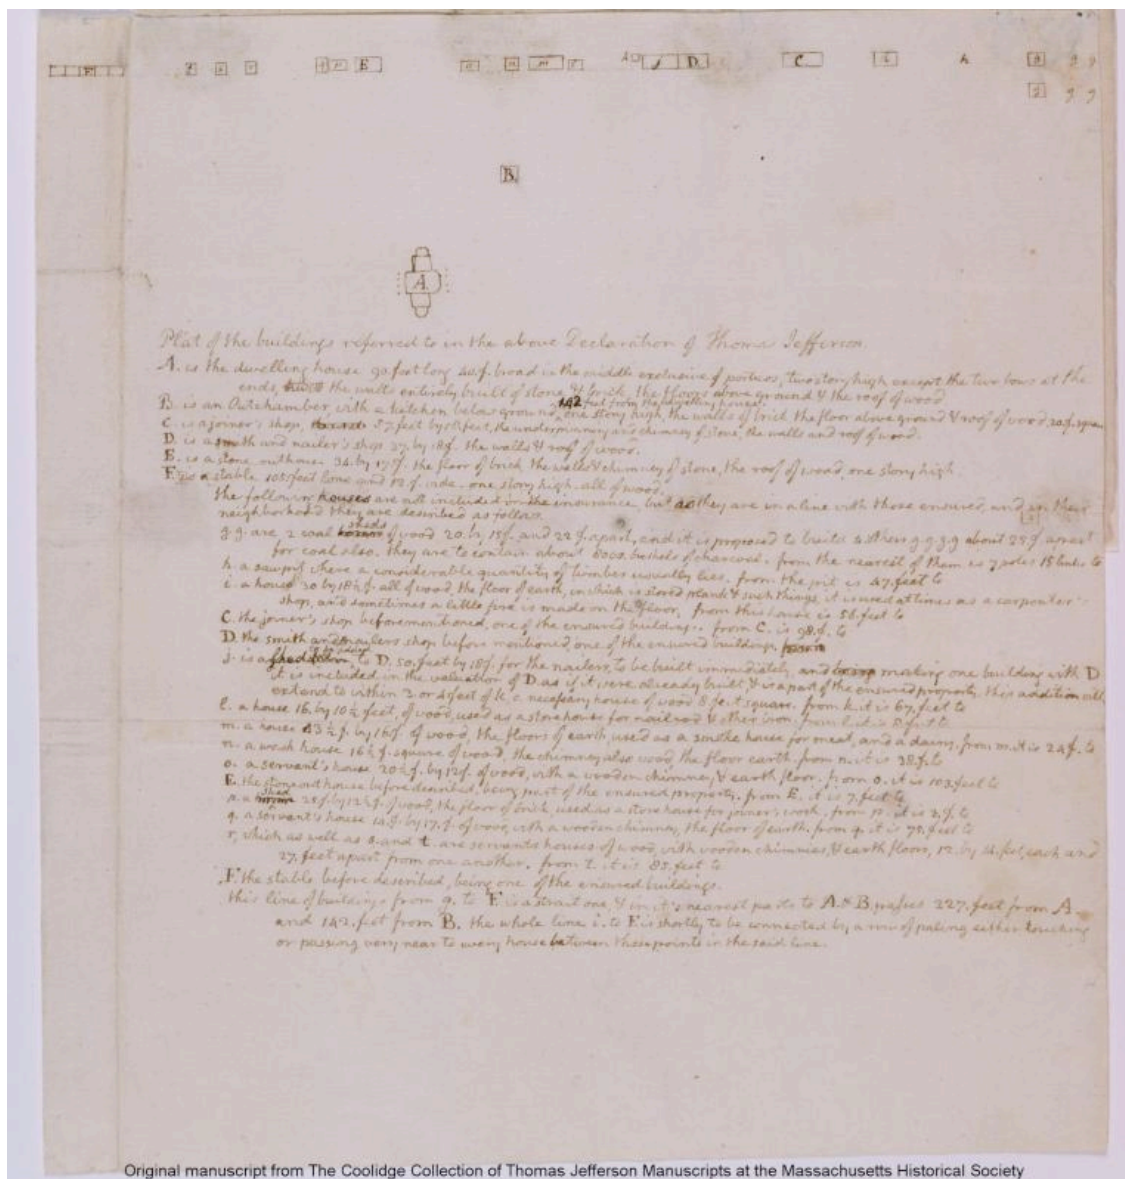 F
E
D.
C.
A
g g
g g
B.
A.
Plat of the buildings referred to in the above Declaration of Thomas Jefferson.
A. is the dwelling house 90. feet long 40. f. broad in the middle exclusive of porticos, two story high except the two bows at the
ends, the walls entirely built of stone & brick, the floors above ground & the roof of wood
142 feet from the dwelling house.
B. is an Outchamber, with a kitchen below ground, one story high, the walls of brick the floor above ground & roof of wood, 20. f. square
C. is a joiner's shop, 57. feet by 18. feet, the underpinning and chimney of stone, the walls and roof of wood.
D. is a smith and nailer's shop 37. by 18 f. the walls & roof of wood.
E. is a stone outhouse 34. by 17½ f. the floor of brick the walls & chimney of stone, the roof of wood, one story high.
F. is a stable 105. feet long and 12 f. wide. one story high. all of wood.
the following houses are not included in the insurance, but as they are in a line with those ensured, and in their
neighborhood they are described as follows.
g. g. are 2 coal sheds of wood 20. by 15 f. and 22 f. apart, and it is proposed to build 4 others g. g. g. g about 25 f. apart
for coal also. they are to contain about 8000. bushels of charcoal. from the nearest of them is 7 poles 18 links to
h. a sawpit where a considerable quantity of timber usually lies. from the pit is 47. feet to
i. a house 20 by 18½ f. all of wood, the floor of earth, in which is stored plank & such things, it is used at times as a carpenter's
shop, and sometimes a little fire is made on the floor. from this house is 56. feet to
C. the joiner's shop beforementioned, one of the ensured buildings. from C. is 98. f. to
D. the smith and nailers shop before mentioned, one of the ensured buildings
j. is a to D. 50. feet by 18 f. for the nailers, to be built immediately, and making one building with D
it is included in the valuation of D. as if it were already built, & is a part of the ensured property. this addition will
extend to within 3 or 4 feet of k. a necessary house of wood 8 feet square. from k. it is 67. feet to
l. a house 16. by 10½ feet, of wood, used as a storehouse for nailrod & other iron. from l. it is 8 feet to
m. a house 43½ f. by 16 f. of wood, the floors of earth, used as a smoke house for meat, and a dairy. from m. it is 24 f. to
n. a wash house 16½ f. square of wood, the chimney also wood, the floor earth. from n. it is 38. f. to
o. a servant's house 20½ f. by 12 f. of wood, with a wooden chimney, & earth floor. from o. it is 103. feet to
E. the stone out house before described, being part of the ensured property. from E. it is 7. feet to
p. a shed 25 f. by 12½ f. of wood, the floor of brick, used as a store house for joiner's work. from p. it is 2 f. to
q. a servant's house 14. f. by 17. f. of wood, with a wooden chimney, the floor of earth. from q. it is 75. feet to
r, which as well as s. and t. are servants houses of wood, with wooden chimnies, & earth floors, 12. by 14. feet, each and
27. feet apart from one another. from t. it is 85. feet to
F. the stable before described, being one of the ensured buildings.
this line of buildings from g. to F. is a strait one & in it's nearest parts to A. & B. passes 227. feet from A
and 142. feet from B. the whole line i. to F is shortly to be connected by a row of paling either touching
or passing very near to every house between those points in the said line.
Original manuscript from The Coolidge Collection of Thomas Jefferson Manuscripts at the Massachusetts Historical Society